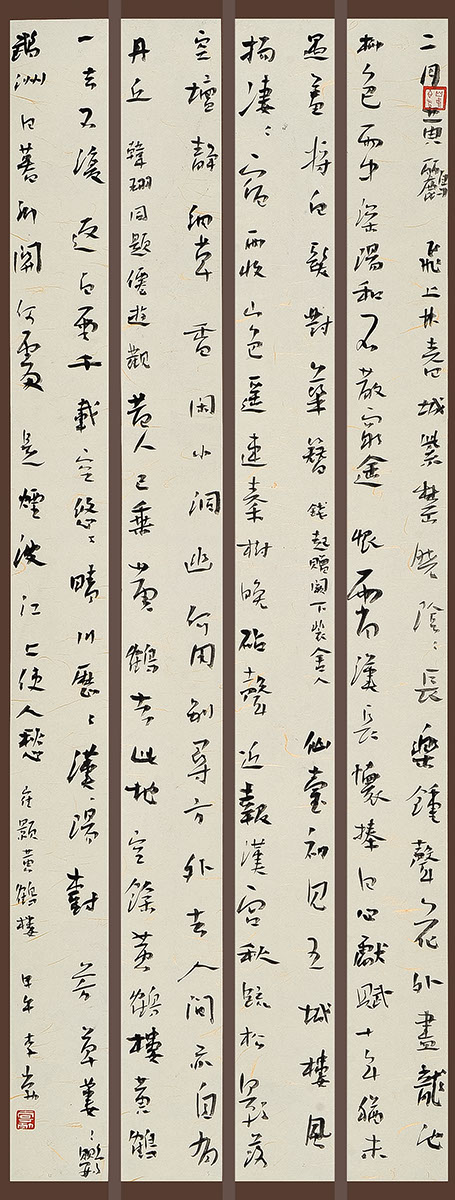 二月黃鸝飛上林春城紫禁曉陰〻長樂鐘聲花外盡龍池
柳色雨中深陽和不散窮途恨霄漢長懷捧日心獻賦十年猶未
遇羞將白髮對華簪 錢起贈闕下裴舍人 仙臺初見五城樓風
物淒〻宿雨收山色遙連秦樹晚砧聲近報漢宮秋疏松影落
空壇靜細草香閑小洞幽何用別尋方外去人間亦自有
丹丘 韓翃同題僊遊觀 昔人已乘黃鶴去此地空餘黃鶴樓黃鶴
一去不復返白雲千載空悠〻晴川歷〻漢陽樹芳草萋〻鸚
鵡洲日暮鄉關何處是煙波江上使人愁 崔顥黃鶴樓 甲午 李